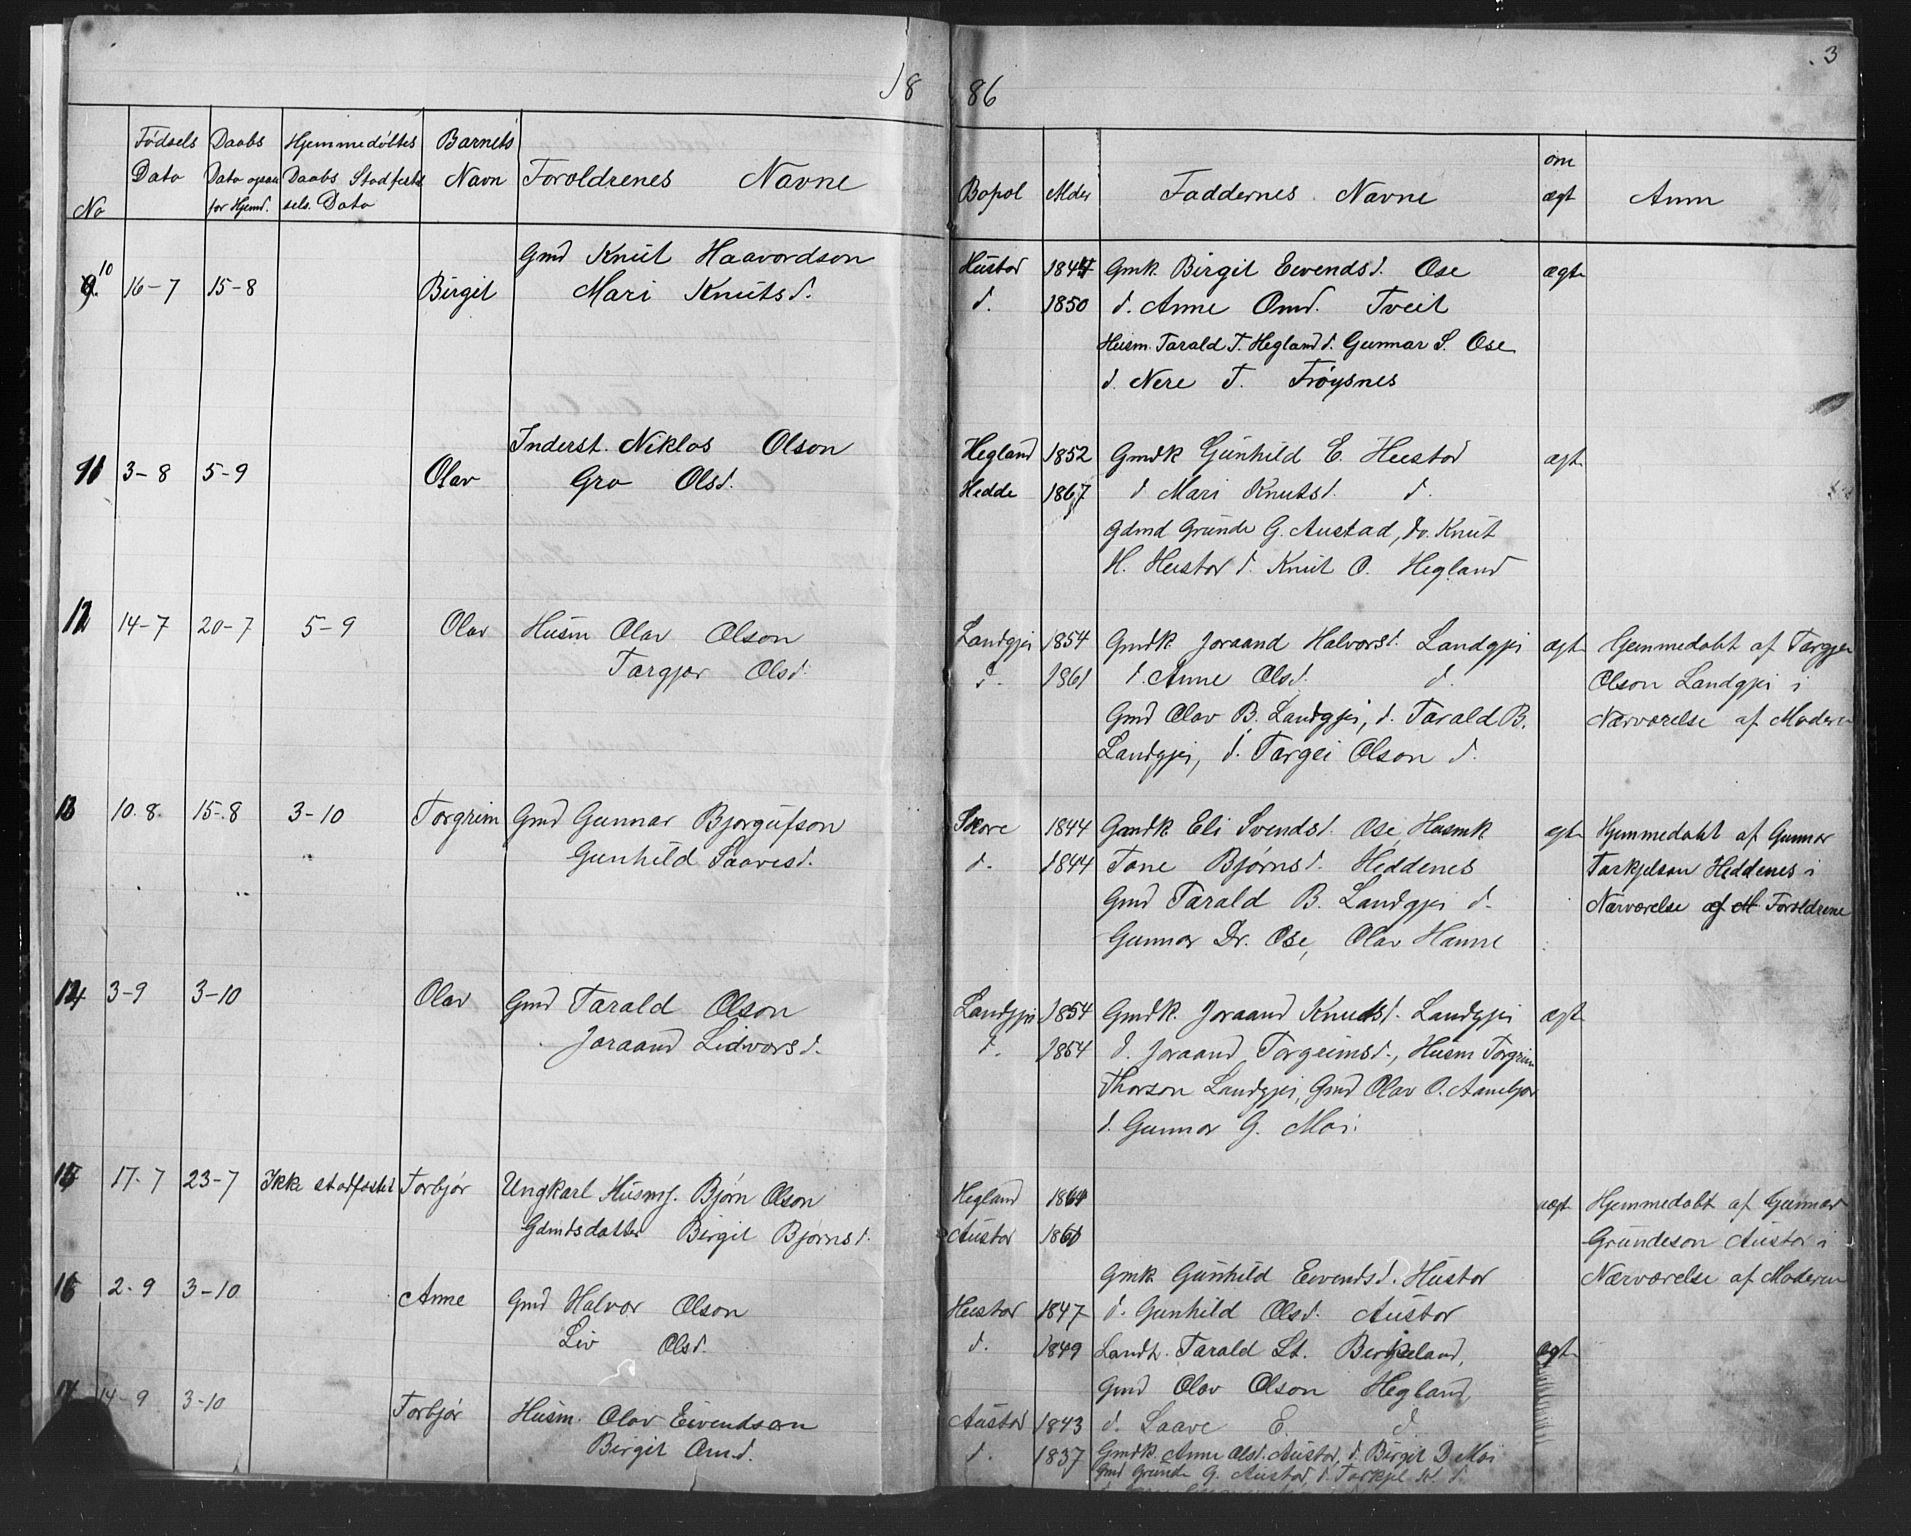 1886
3
No
Fødsels Dato
Daabs Dato ogsaa for Hjemd.
Hjemmedøbtes Daabs Stadfestelsels Dato
Barnets Navn
Foroldrenes Navne
Bopel
Alder
Faddernes Navne
om ægt
Anm
10 16-7 15-8 Birgit Gmd Knut Haavordson Hustad 1844 Gmk Birgit Eivendsd. Ose ægt
Mari Knutsd. d. 1850 d. Anne Omd. Tveit
Husm. Tarald T. Hegland d. Gunnar S. Ose
d. Nere T. Frøysnes
11 3-8 5-9 Olav Inderst. Niklos Olson Hegland 1852 Gmdk Gunhild E. Hustad ægt
Gro Olsd. Hedde 1867 d Mari Knutsd. d.
Gdmd Grunde G. Austad, do. Knut
H. Hustad d. Knut O. Hegland
12 14-7 20-7 5-9 Olav Husm Olav Olson Landgjei 1854 Gmdk. Joraand Halvorsd. Landgjei ægt Hjemmedøbt af Targjei
Targjer Olsd. d. 1861 d. Anne Olsd. d. Olson Landgjei i
Gmd Olav B. Landgjei, d. Tarald B. Nærværelse af Moderen
Landgjei, d. Targei Olson d.
13 10.8. 15-.8 3-10 Torgrim Gmd Gunnar Bjorgufson Skore 1844 Gmdk Eli Svendsd. Ose, Husmk ægt Hjemmedøbt af Gunnar
Gunhild Saavesd. d. 1844 Tone Bjørnsd. Heddenes Tarkjelson Heddenes i
Gmd Tarald B. Landgjei d. Nærværelse af M Foroldrene
Gunnar Dr. Ose, Olav Hanne
14 3-9 3-10 Olav Gmd Tarald Olson Landgjei 1854 Gmdk. Joraand Knutsd. Landgjei ægt
Joraand Lidvorsd. d. 1854 d. Joraand Torgrimsd., Husm Torgrim
Thorson Landgjei, Gmd Olav O. Aamlgjer
d. Gunnar G. Moi.
15 17-7 23-7 Ikke stadfestet Torbjør Ungkarl Husmf. Bjørn Olson Hegland 1864 uægt Hjemmedøbt af Gunnar
Gamdsdatter Birgit Bjørnsd. Austad 1860 Grundeson Austad i
Gmk Gunhild Eivendsd. Hustad Nærværelse af Moderen
16 2-9 3-10 Anne Gmd Halvor Olson Hustad 1847 d. Gunhild Olsd. Austad
Liv Olsd. d. 1849 Landh. Tarald St. Berkeland, ægt
Gmd Olav Olson Hegland,
17 14-9 3-10 Torbjør Husm. Olav Eivendson Austad 1843 d. Saave E. d.
Birgit Omd. d. 1837 Gmdk Anne Olsd. Austad, d. Birgit D Moi
Gmd Grunde G. Austad, d. Tarkjel